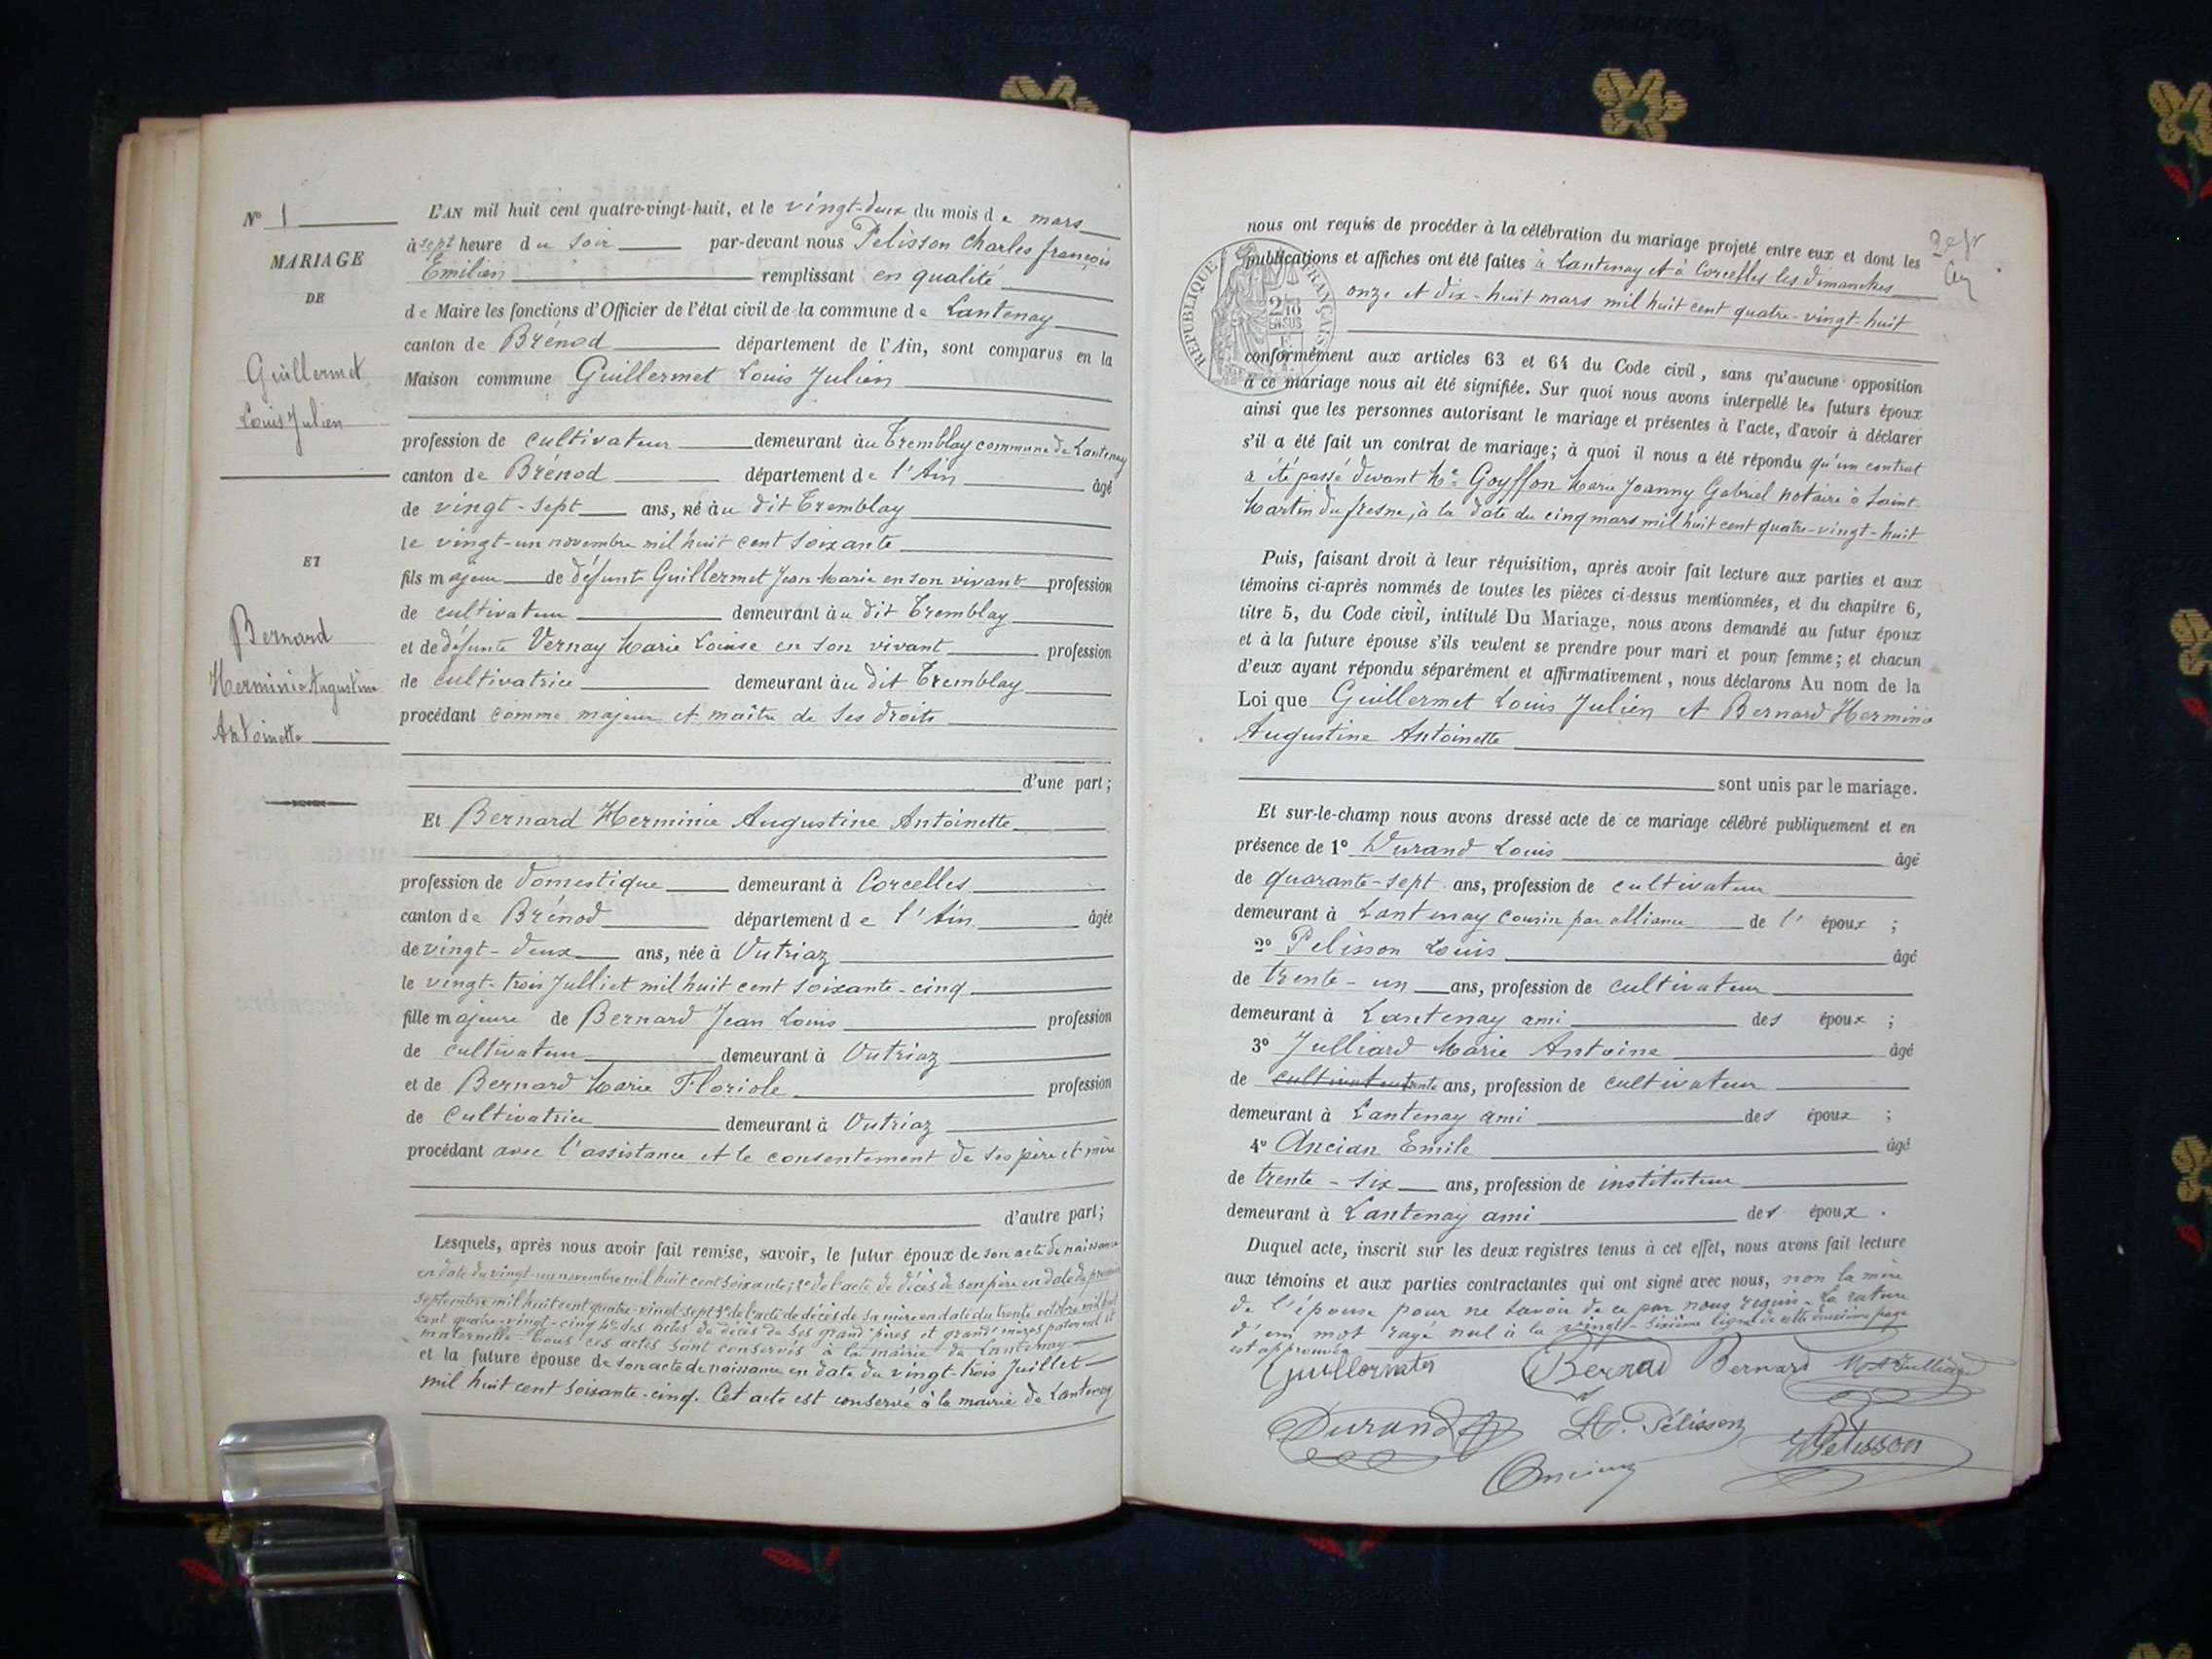 N° 1
MARIAGE
DE
Guillermet
Louis Julien
ET
Bernard
Herminie Augustine
Antoinette
L'AN mil huit cent quatre-vingt-huit, et le vingt-deux du mois de mars
à sept heure du soir par-devant nous Pelisson Charles françois
Emilien remplissant en qualité
de Maire les fonctions d'Officier de l'état civil de la commune de Lantenay
canton de Brénod département de l'Ain, sont comparus en la
Maison commune Guillermet Louis Julien
profession de cultivateur demeurant au Tremblay commune de Lantenay
canton de Brénod département de l'Ain âgé
de vingt-sept ans, né au dit Tremblay
le vingt-un novembre mil huit cent soixante
fils majeur de défunt Guillermet Jean Marie en son vivant profession
de cultivateur demeurant au dit Tremblay
et de défunte Vernay Marie Louise en son vivant profession
de cultivatrice demeurant au dit Tremblay
procédant comme majeur et maître de ses droits
d'une part;
Et Bernard Herminie Augustine Antoinette
profession de domestique demeurant à Corcelles
canton de Brénod département de l'Ain âgée
de vingt-deux ans, née à Outriaz
le vingt-trois Julliet mil huit cent soixante-cinq
fille majeure de Bernard Jean Louis profession
de cultivateur demeurant à Outriaz
et de Bernard Marie Floriole profession
de cultivatrice demeurant à Outriaz
procédant avec l'assistance et le consentement de ses père et mère
d'autre part;
Lesquels, après nous avoir fait remise, savoir, le futur époux de son acte de naissance
en date du vingt-un novembre mil huit cent soixante; 2° de l'acte de décès de son père en date du premier
septembre mil huit cent quatre-vingt-sept 3° de l'acte de décès de sa mère en date du trente octobre mil huit
cent quatre-vingt-cinq 4° des actes de décès de ses grand'pères et grand'mères paternel et
maternelle. Tous ces actes sont conservés à la mairie de Lantenay
et la future épouse de son acte de naissance en date du vingt-trois Juillet
mil huit cent soixante-cinq. Cet acte est conservé à la mairie de Lantenay
nous ont requis de procéder à la célébration du mariage projeté entre eux et dont les
publications et affiches ont été faites à Lantenay et à Corcelles les dimanches
onze et dix-huit mars mil huit cent quatre-vingt-huit
RÉPUBLIQUE FRANÇAISE
2/10
EN SUS
conformément aux articles 63 et 64 du Code civil, sans qu'aucune opposition
à ce mariage nous ait été signifiée. Sur quoi nous avons interpellé les futurs époux
ainsi que les personnes autorisant le mariage et présentes à l'acte, d'avoir à déclarer
s'il a été fait un contrat de mariage; à quoi il nous a été répondu qu'un contrat
a été passé devant Me Goyffon Marie Joanny Gabriel notaire à Saint-
Martin du fresne, à la date du cinq mars mil huit cent quatre-vingt-huit
Puis, faisant droit à leur réquisition, après avoir fait lecture aux parties et aux
témoins ci-après nommés de toutes les pièces ci-dessus mentionnées, et du chapitre 6,
titre 5, du Code civil, intitulé Du Mariage, nous avons demandé au futur époux
et à la future épouse s'ils veulent se prendre pour mari et pour femme; et chacun
d'eux ayant répondu séparément et affirmativement, nous déclarons Au nom de la
Loi que Guillermet Louis Julien et Bernard Herminie
Augustine Antoinette
sont unis par le mariage.
Et sur-le-champ nous avons dressé acte de ce mariage célébré publiquement et en
présence de 1° Durand Louis âgé
de quarante-sept ans, profession de cultivateur
demeurant à Lantenay cousin par alliance de l'époux ;
2° Pelisson Louis âgé
de trente-un ans, profession de cultivateur
demeurant à Lantenay ami des époux ;
3° Julliard Marie Antoine âgé
de cultivateur trente ans, profession de cultivateur
demeurant à Lantenay ami des époux ;
4° Ancian Emile âgé
de trente-six ans, profession de instituteur
demeurant à Lantenay ami des époux.
Duquel acte, inscrit sur les deux registres tenus à cet effet, nous avons fait lecture
aux témoins et aux parties contractantes qui ont signé avec nous, non la mère
de l'épouse pour ne savoir de ce par nous requis. La rature
d'un mot rayé nul à la vingt-sixième ligne de cette deuxième page
est approuvée
Bernard Bernard M A Julliard
Durand L. Pélisson Pelisson
Ancian